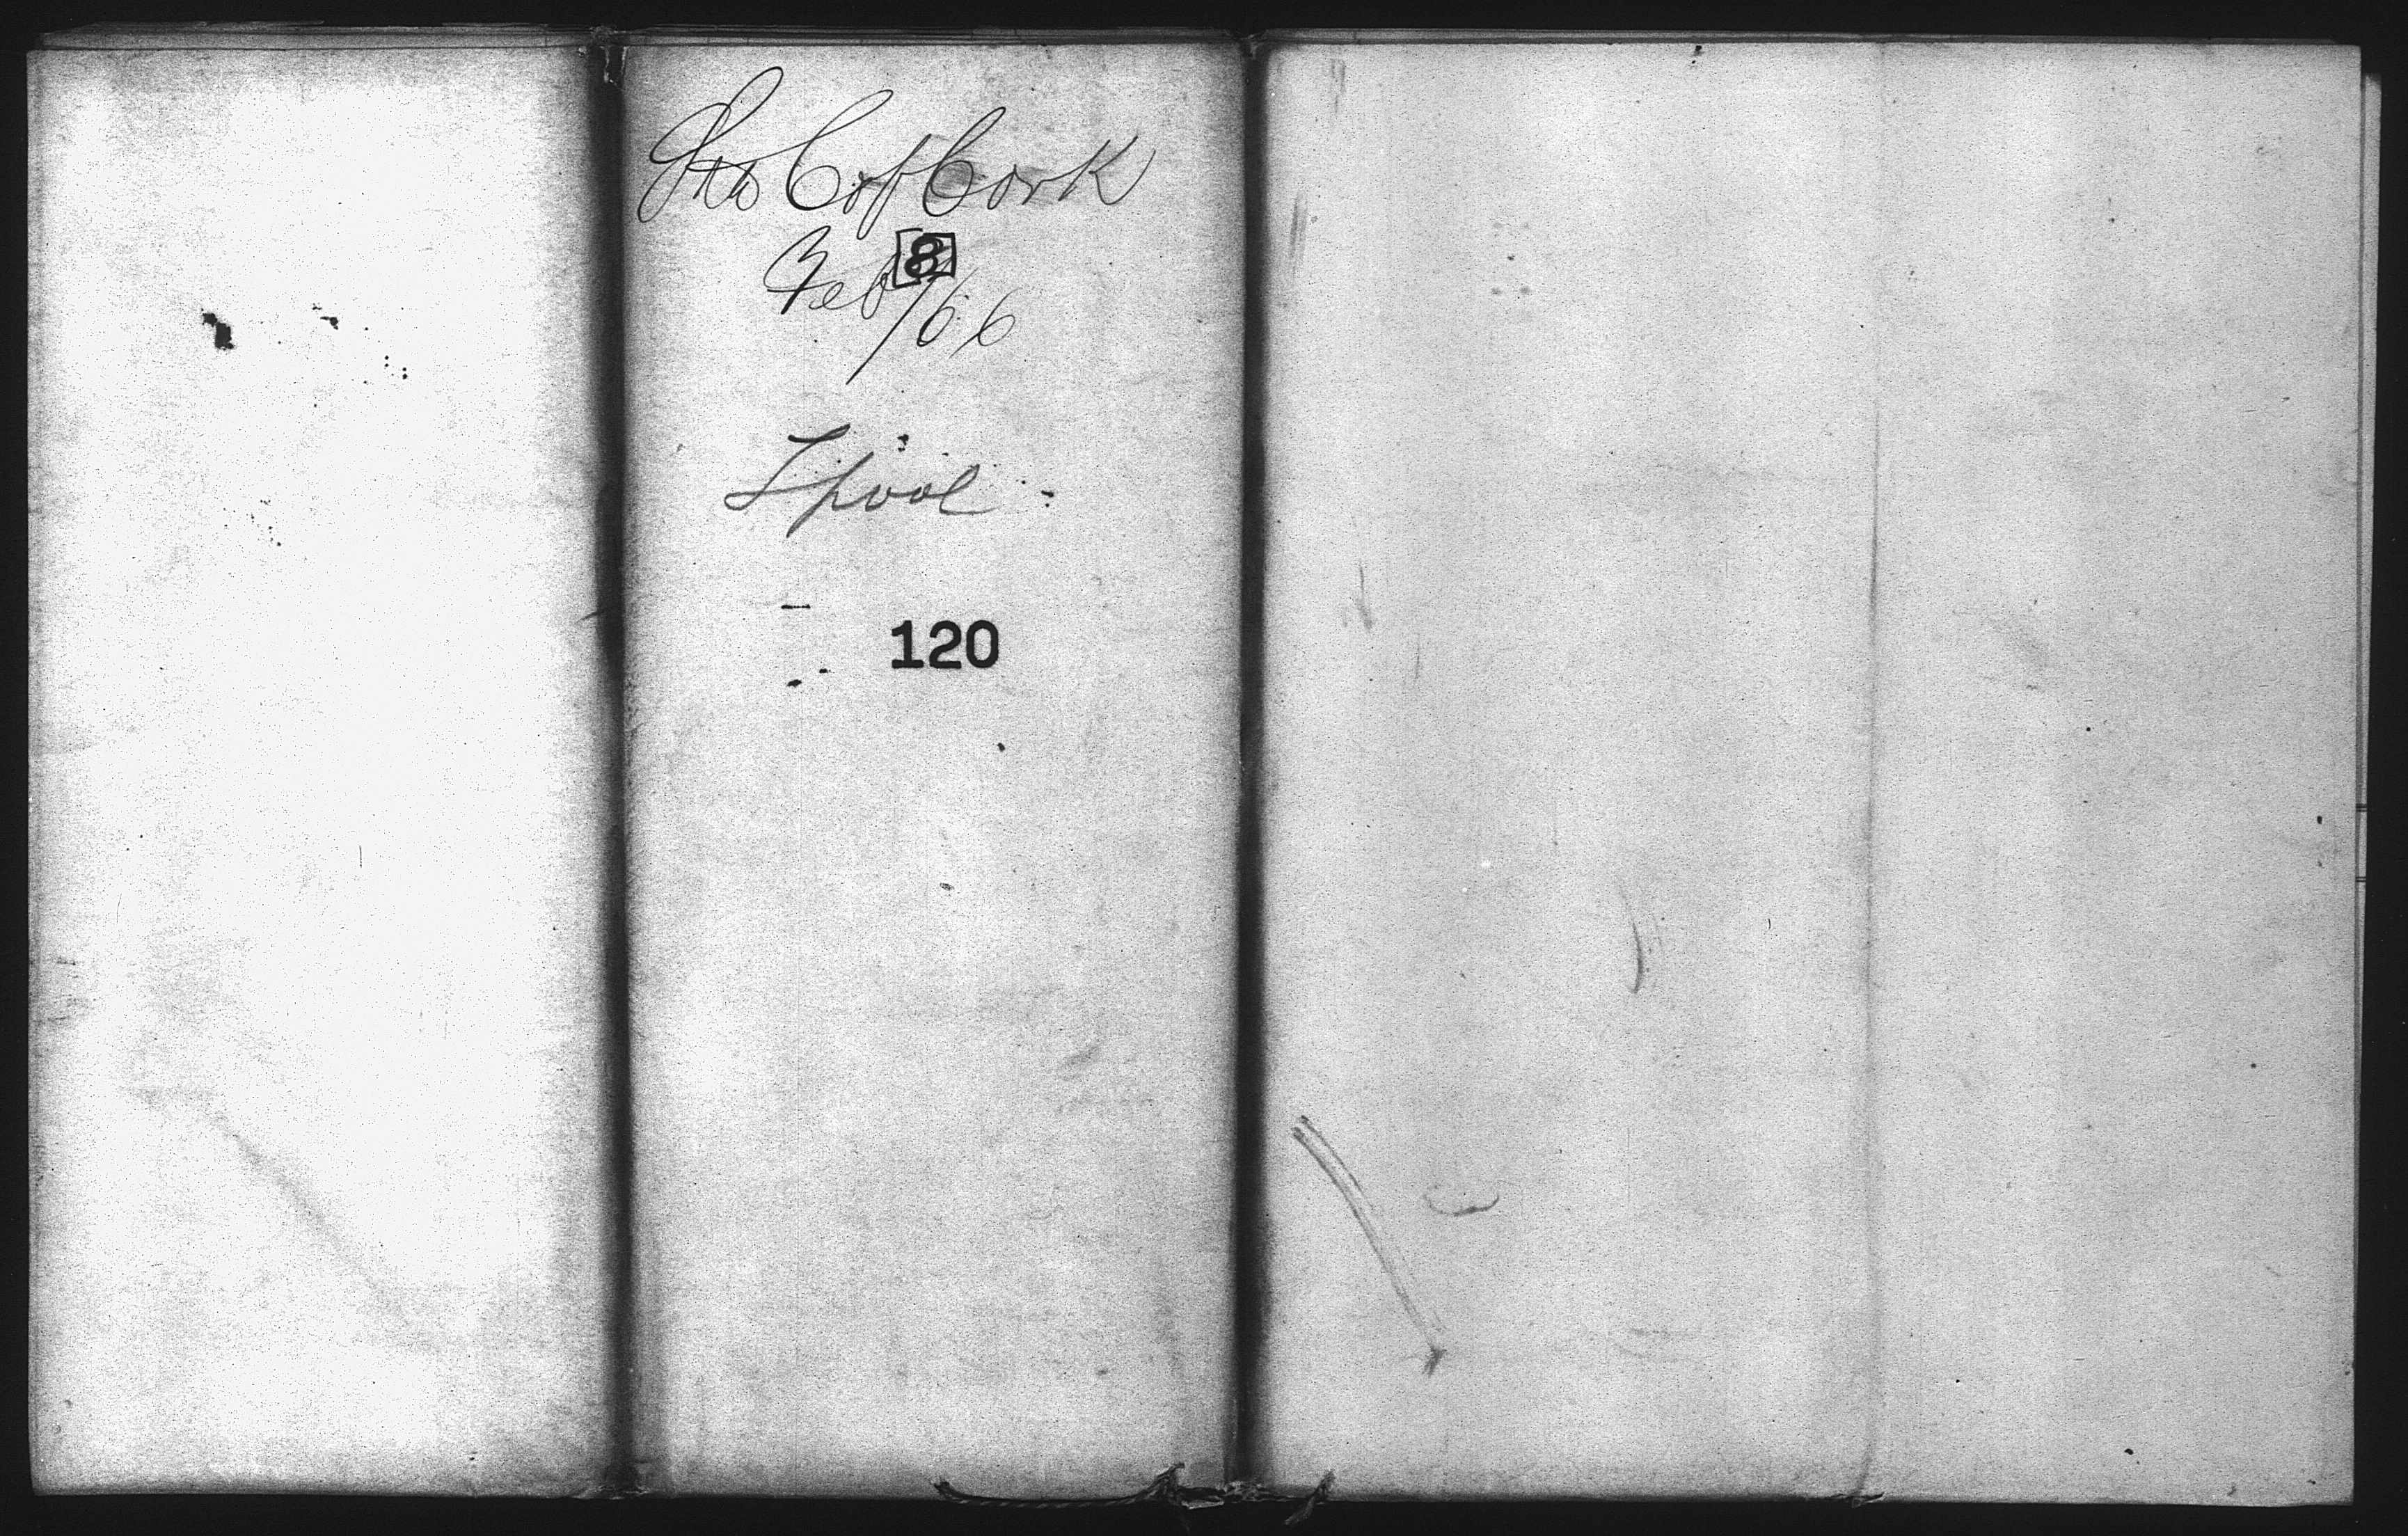 Str C of Cork
Feb [8]/66
Lpool
120